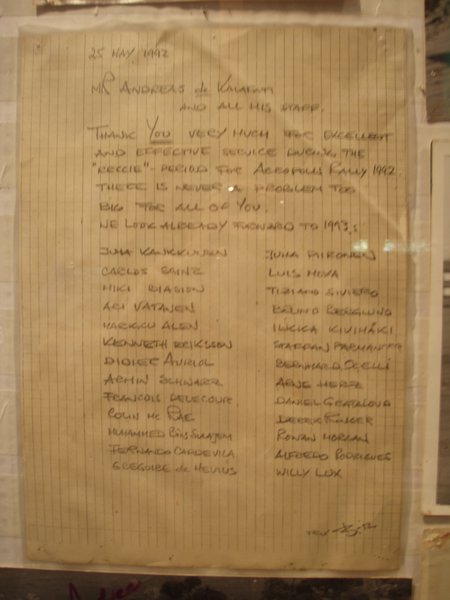 25 MAY, 1992
MR ANDREAS de KALAFATI
AND ALL HIS STAFF.
THANK YOU VERY MUCH FOR EXCELLENT
AND EFFECTIVE SERVICE DURING THE
"RECCIE"-PERIOD FOR ACROPOLIS RALLY 1992.
THERE IS NEVER A PROBLEM TOO
BIG FOR ALL OF YOU.
WE LOOK ALREADY FORWARD TO 1993:
JUHA KANKKUNEN JUHA PIIRONEN
CARLOS SAINZ LUIS MOYA
MIKI BIASION TIZIANO SIVIERO
ARI VATANEN BRUNO BERGLUND
MARKKU ALEN ILKKA KIVIMÄKI
KENNETH ERIKSSON STAFFAN PARMANDER
DIDIER AURIOL BERNHARD OCELLI
ARMIN SCHWARZ ARNE HERTZ
FRANCOIS DELECOUR DANIEL GRATALOUP
COLIN Mc RAE DEREK RINGER
MUHAMMED BIN SULAYEM RONAN MORGAN
FERNANDO CAPDEVILA ALFREDO RODRIGUES
GREGOIRE de MEVIUS WILLY LUX